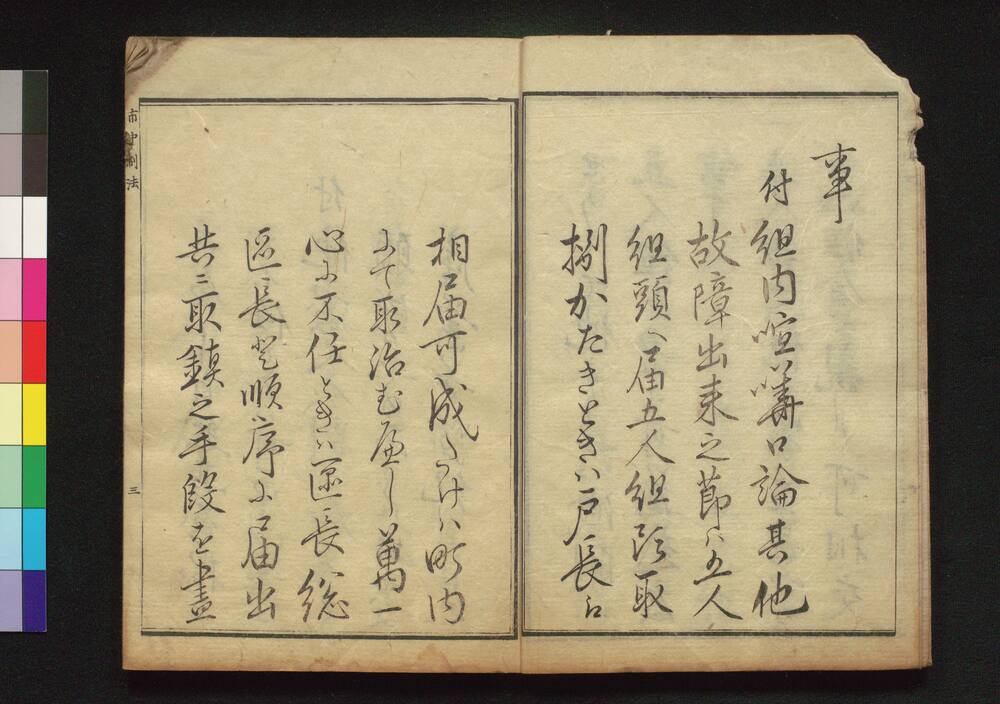 事
付組内喧嘩口論其他
故障出来之節ハ五人
組頭へ届五人組頭取
捌かたきときハ戸長江
相届可成たけハ町内
ニて取治むへし萬一
心ニ不任ときハ区長総
区長迄順序ニ届出
共ニ取鎮之手段を盡
市中制法
三